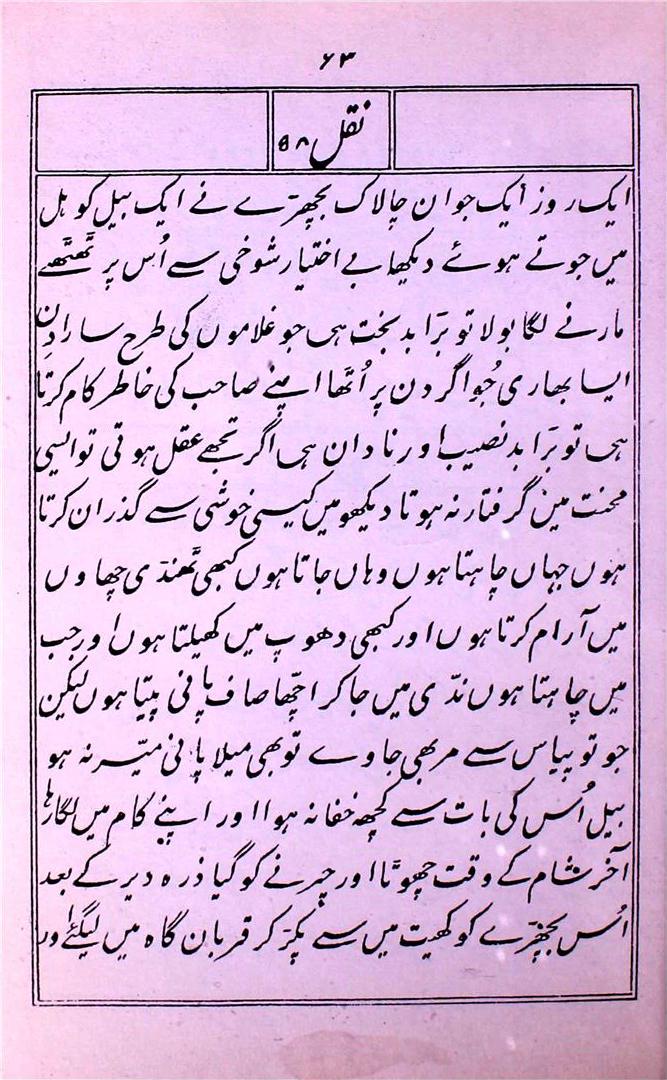 ۶۳
نقل ۵۸
ایک روز ایک جوان چالاک بچھڑے نے ایک بیل کو ہل
میں جوتے ہوئے دیکھا بے اختیار شوخی سے اُس پر ٹھٹھے
مارنے لگا بولا تو بڑا بدبخت ہی جو غلاموں کی طرح سارا دن
ایسا بھاری جُوا گردن پر اُٹھا اپنے صاحب کی خاطر کام کرتا
ہی تو بڑا بد نصیب اور نادان ہی اگر تجھے عقل ہوتی تو ایسی
محنت میں گرفتار نہ ہوتا دیکھو میں کیسی خوشی سے گذران کرتا
ہوں جہاں چاہتا ہوں وہاں جاتا ہوں کبھی ٹھنڈی چھاوں
میں آرام کرتا ہوں اور کبھی دھوپ میں کھیلتا ہوں اور جب
میں چاہتا ہوں ندّی میں جا کر اچّھا صاف پانی پیتا ہوں لیکن
جو تو پیاس سے مر بھی جاوے تو بھی میلا پانی میّسر نہ ہو
بیل اُس کی بات سے کچھ خفا نہ ہوا اور اپنے کام میں لگا رہا
آخر شام کے وقت چھوٹا اور چرنے کو گیا ذرہ دیر کے بعد
اُس بچھڑے کو کھیت میں سے پکڑ کر قربان گاہ میں لیگئے اور